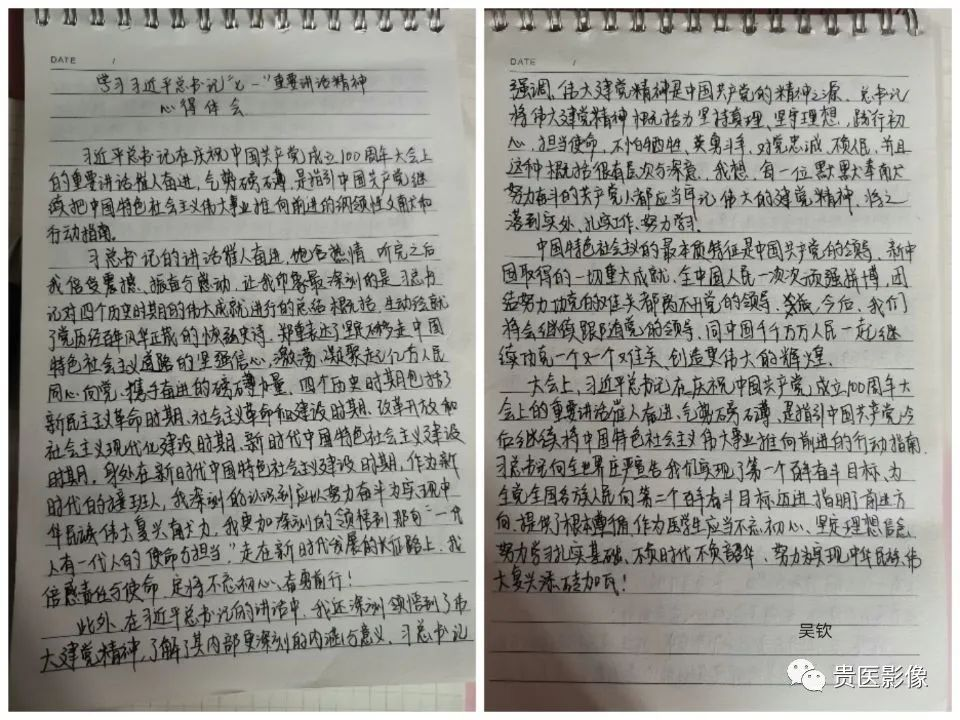 DATE /
学习习近平总书记"七一"重要讲话精神
心得体会
习近平总书记在庆祝中国共产党成立100周年大会上
的重要讲话催人奋进,气势磅礴,是指引中国共产党继
续把中国特色社会主义伟大事业推向前进的纲领性文献和
行动指南。
习总书记的讲话催人奋进,饱含热情,听完之后
我倍受震撼、振奋与感动,让我印象最深刻的是习总书
记对四个历史时期的伟大成就进行的总结概括,生动绘就
了党历经百年风华正茂的恢弘史诗,郑重表达了坚定走中国
特色社会主义道路的坚强信心,激荡、凝聚起亿万人民
同心向党、携手奋进的磅礴力量。四个历史时期包括了
新民主主义革命时期、社会主义革命和建设时期、改革开放和
社会主义现代化建设时期、新时代中国特色社会主义建设
时期,身处在新时代中国特色社会主义建设时期,作为新
时代的接班人,我深刻的认识到应以努力奋斗为实现中
华民族伟大复兴奋力,我更加深刻的领悟到那句"一代
人有一代人的使命与担当",走在新时代发展的长征路上,我
倍感责任与使命,定将不忘初心、奋勇前行!
此外,在习近平总书记的讲话中,我还深刻领悟到了伟
大建党精神,了解了其内部更深刻的内涵与意义,习总书记
DATE /
强调,伟大建党精神是中国共产党的精神之源,总书记
将伟大建党精神概括为坚持真理、坚守理想,践行初
心、担当使命,不怕牺牲、英勇斗争,对党忠诚、不负人民,并且
这种概括很有层次与深意,我想,每一位默默奉献
努力奋斗的共产党人都应当牢记伟大的建党精神,将之
落到实处,扎实工作、努力学习。
中国特色社会主义的最本质特征是中国共产党的领导,新中
国取得的一切重大成就,全中国人民一次次顽强拼搏,团
结努力攻克的难关都离不开党的领导,今后,我们
将会继续跟随党的领导,同中国千千万万人民一起继
续攻克一个又一个难关,创造更伟大的辉煌。
大会上,习近平总书记在庆祝中国共产党成立100周年大
会上的重要讲话催人奋进、气势磅礴,是指引中国共产党今
后继续将中国特色社会主义伟大事业推向前进的行动指南,
习总书记向全世界庄严宣告我们实现了第一个百年奋斗目标,为
全党全国各族人民向第二个百年奋斗目标迈进指明了前进方
向,提供了根本遵循,作为医学生应当不忘初心、坚定理想信念,
努力学习扎实基础,不负时代不负韶华,努力为实现中华民族伟
大复兴添砖加瓦!
吴钦
贵医影像